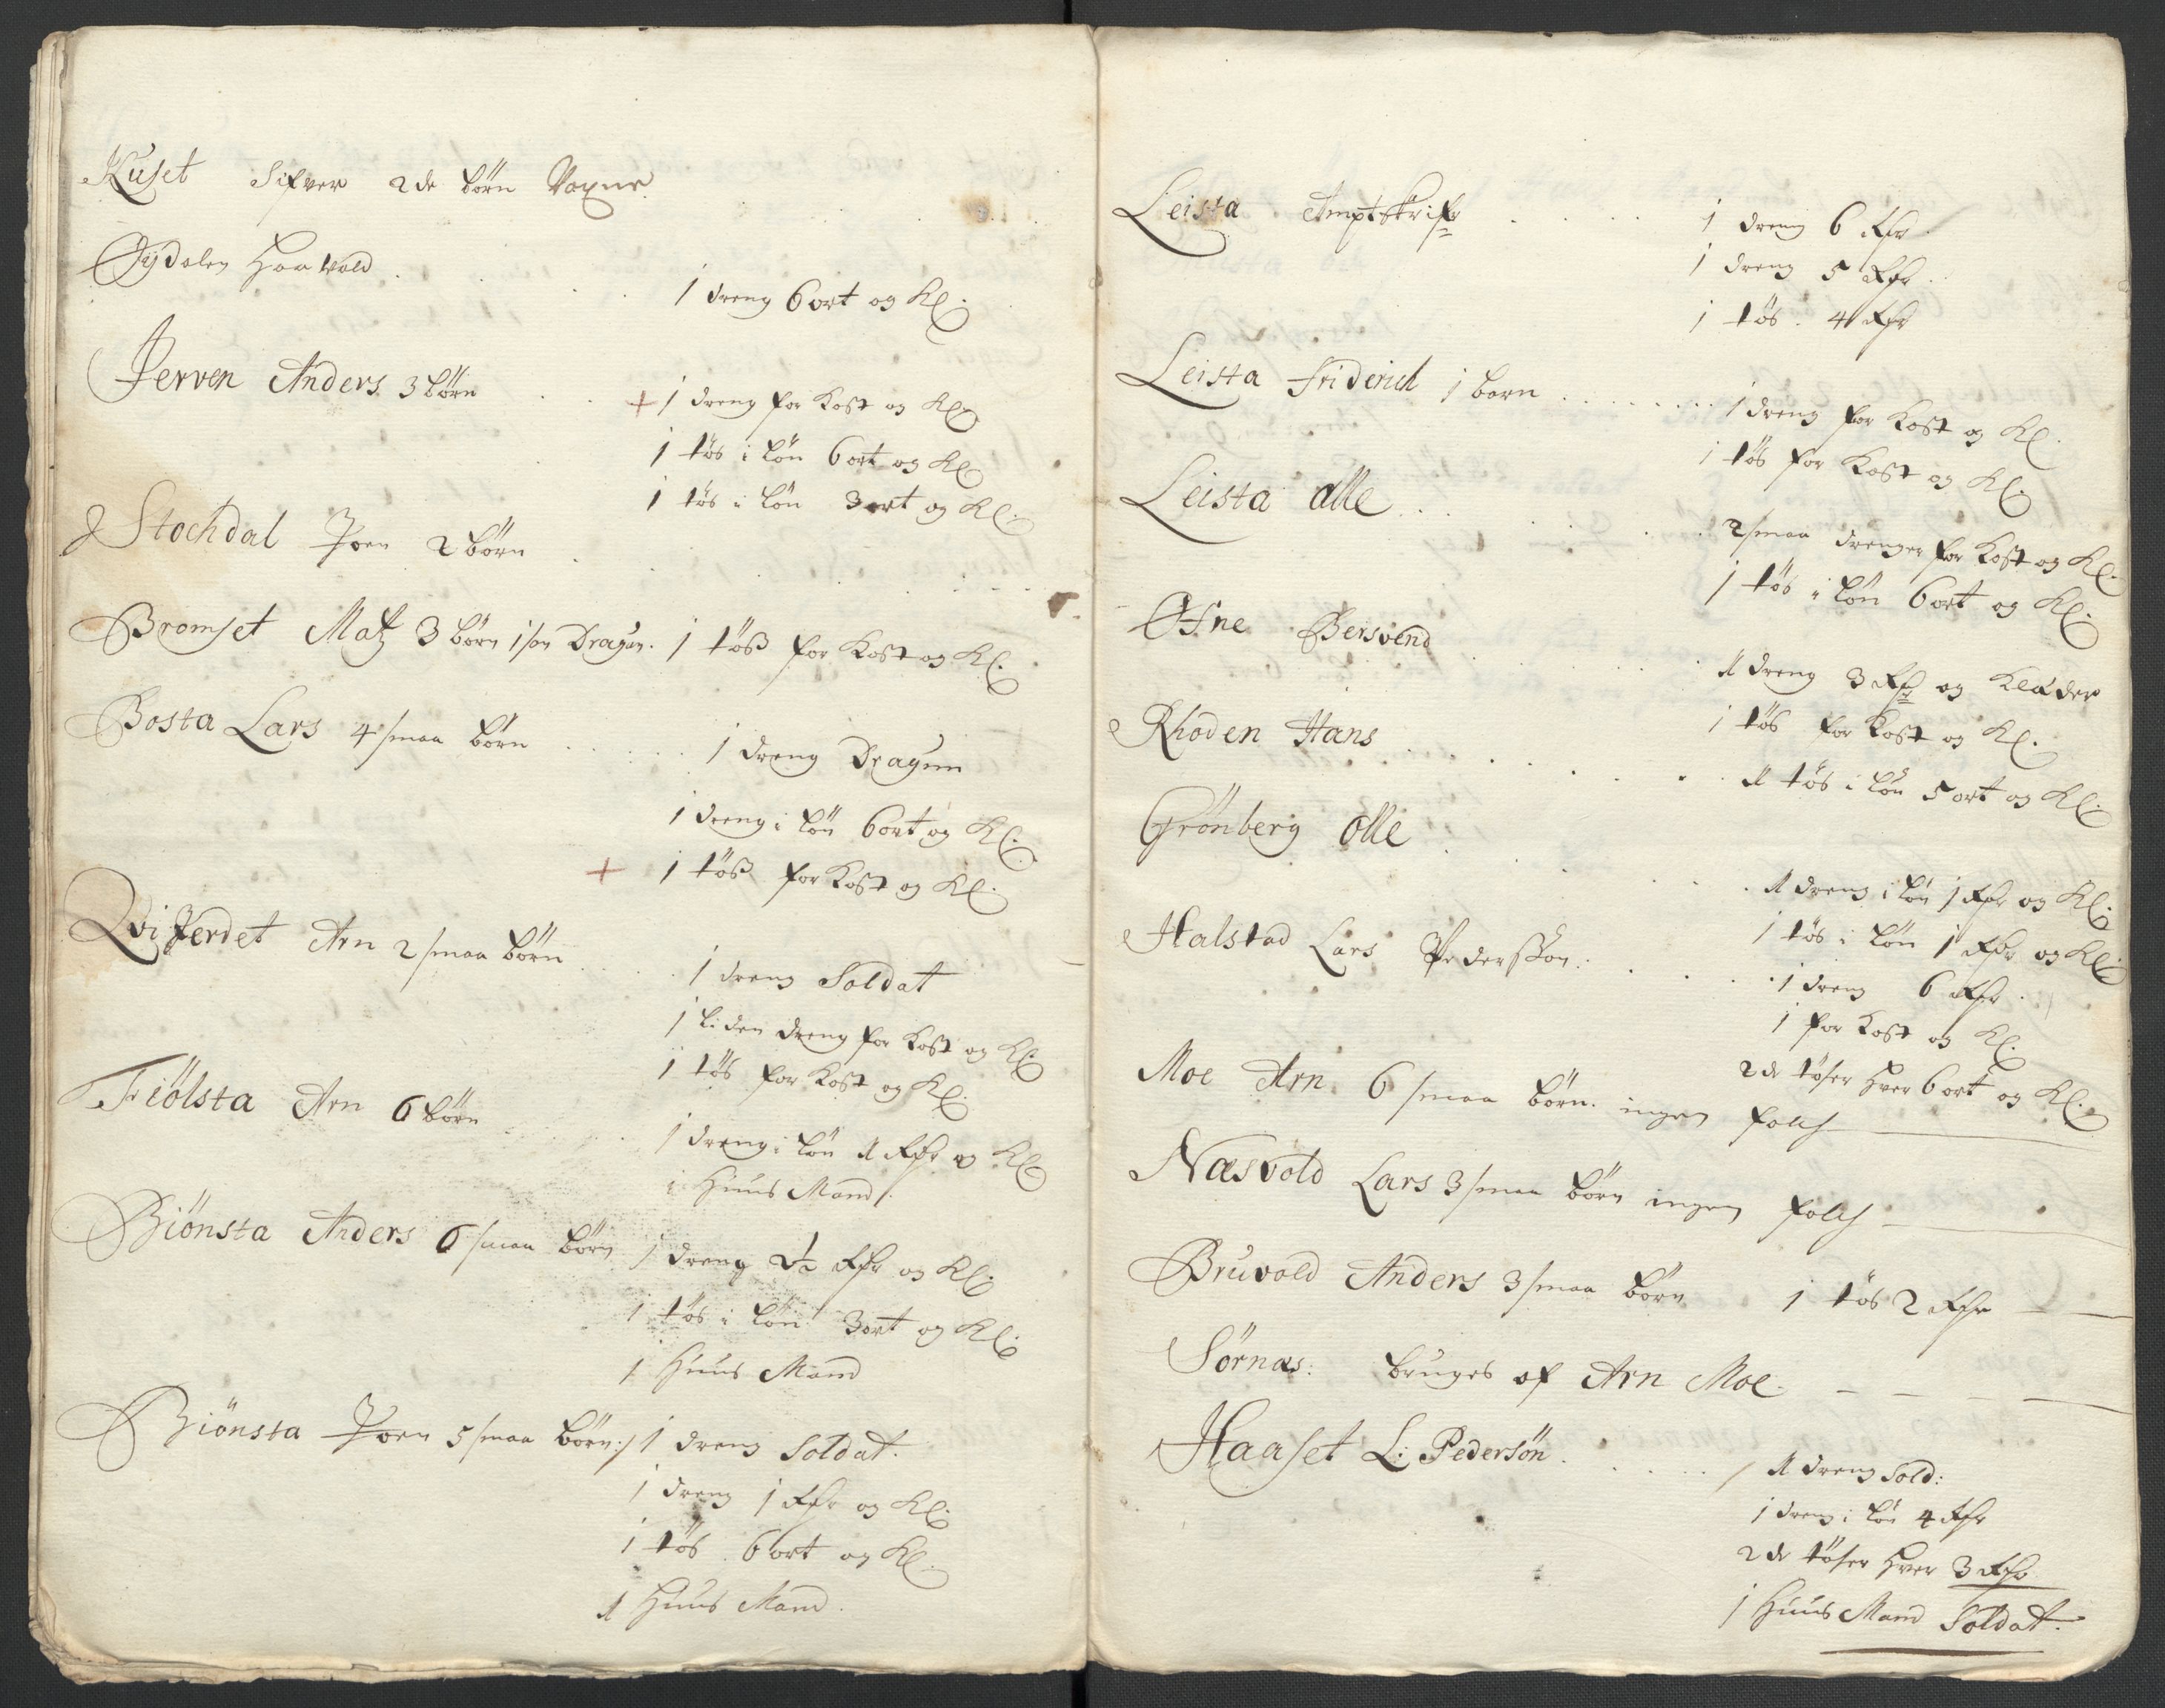 Kuset Sifver 2de börn Voxne
Øÿdalen Haavold . . . 1 dreng 6 ort og Kl:
Jerven Anders 3 börn . . + 1 dreng for Kost og Kl:
1 tös i lön 6 ort og Kl:
1 tös i lön 3 ort og Kl:
Stochdal Joen 2 börn
Bromset Matz 3 börn 1 sön Dragun. 1 töss for Kost og Kl:
Bosta Lars 4 smaa börn . . . . 1 dreng Dragun
1 dreng i lön 6 ort og Kl:
+ 1 töss for Kost og Kl:
Qviferdet Arn 2 smaa börn . . 1 dreng Soldat
1 liden dreng for Kost og Kl:
1 tös for Kost og Kl:
Fiölsta Arn 6 börn . . 1 dreng i lön 1 Rdr og Kl:
1 Huus Mand.
Biönsta Anders 6 smaa börn 1 dreng 2½ Rdr og Kl:
1 tös i lön 3 ort og Kl:
1 Huus Mand
Biönsta Joen 5 smaa börn:/ 1 dreng Soldat.
1 dreng 1 Rdr og Kl:
1 tös 6 ort og Kl:
1 Huus Mand.
Leista Amptskrifr . . . 1 dreng 6 Rdr.
1 dreng 5 Rdr.
1 tös. 4 Rdr
Leista Friderich 1 barn . . . . . . 1 dreng for Kost og Kl.
1 tös for Kost og Kl:
Leista Olle . . . . 2 smaa drenger for Kost og Kl:
1 tös i lön 6 ort og Kl:
Ofne Bersvend . . . . 1 dreng 3 Rdr og Klæder
1 tös for Kost og Kl.
Rhoden Hans . . . . . . 1 tös i lön 5 ort og Kl:
Grönberg Olle . . . . 1 dreng i lön 1 Rdr og Kl:
1 tös i lön 1 Rdr og Kl:
Halstad Lars Pedersson: . . . 1 dreng 6 Rdr.
1 for Kost og Kl:
2de töser hver 6 ort og Kl:
Moe Arn 6 smaa börn. ingen folch
Næsvold Lars 3 smaa börn ingen folch
Bruvold Anders 3 smaa börn 1 tös 2 Rdr
Sörnæs: bruges af Arn Moe.
Haaset L: Pedersön . . . . / 1 dreng Sold:
1 dreng i lön 4 Rdr
2de töser hver 3 Rdr
1 Huus Mand Soldat.